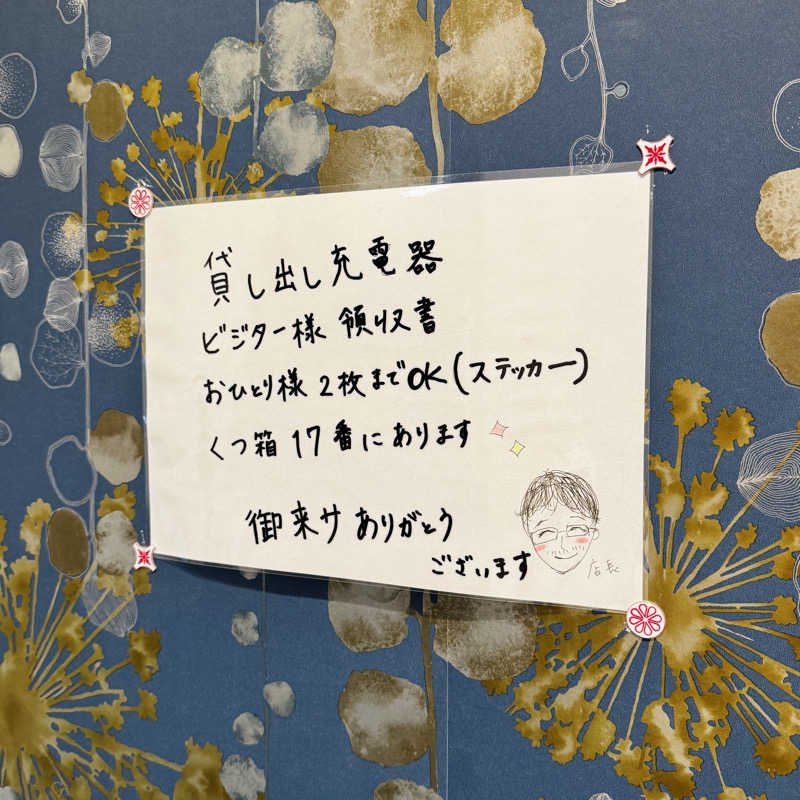 貸し出し充電器
ビジター様 領収書
おひとり様 2枚までOK(ステッカー)
くつ箱 17番にあります
御来サ ありがとう
ございます
店長